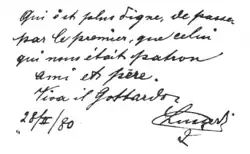 Qui est plus digne, de passer
par le premier, que celui
qui nous était patron
ami et père.
Viva il Gottardo
28/II/80